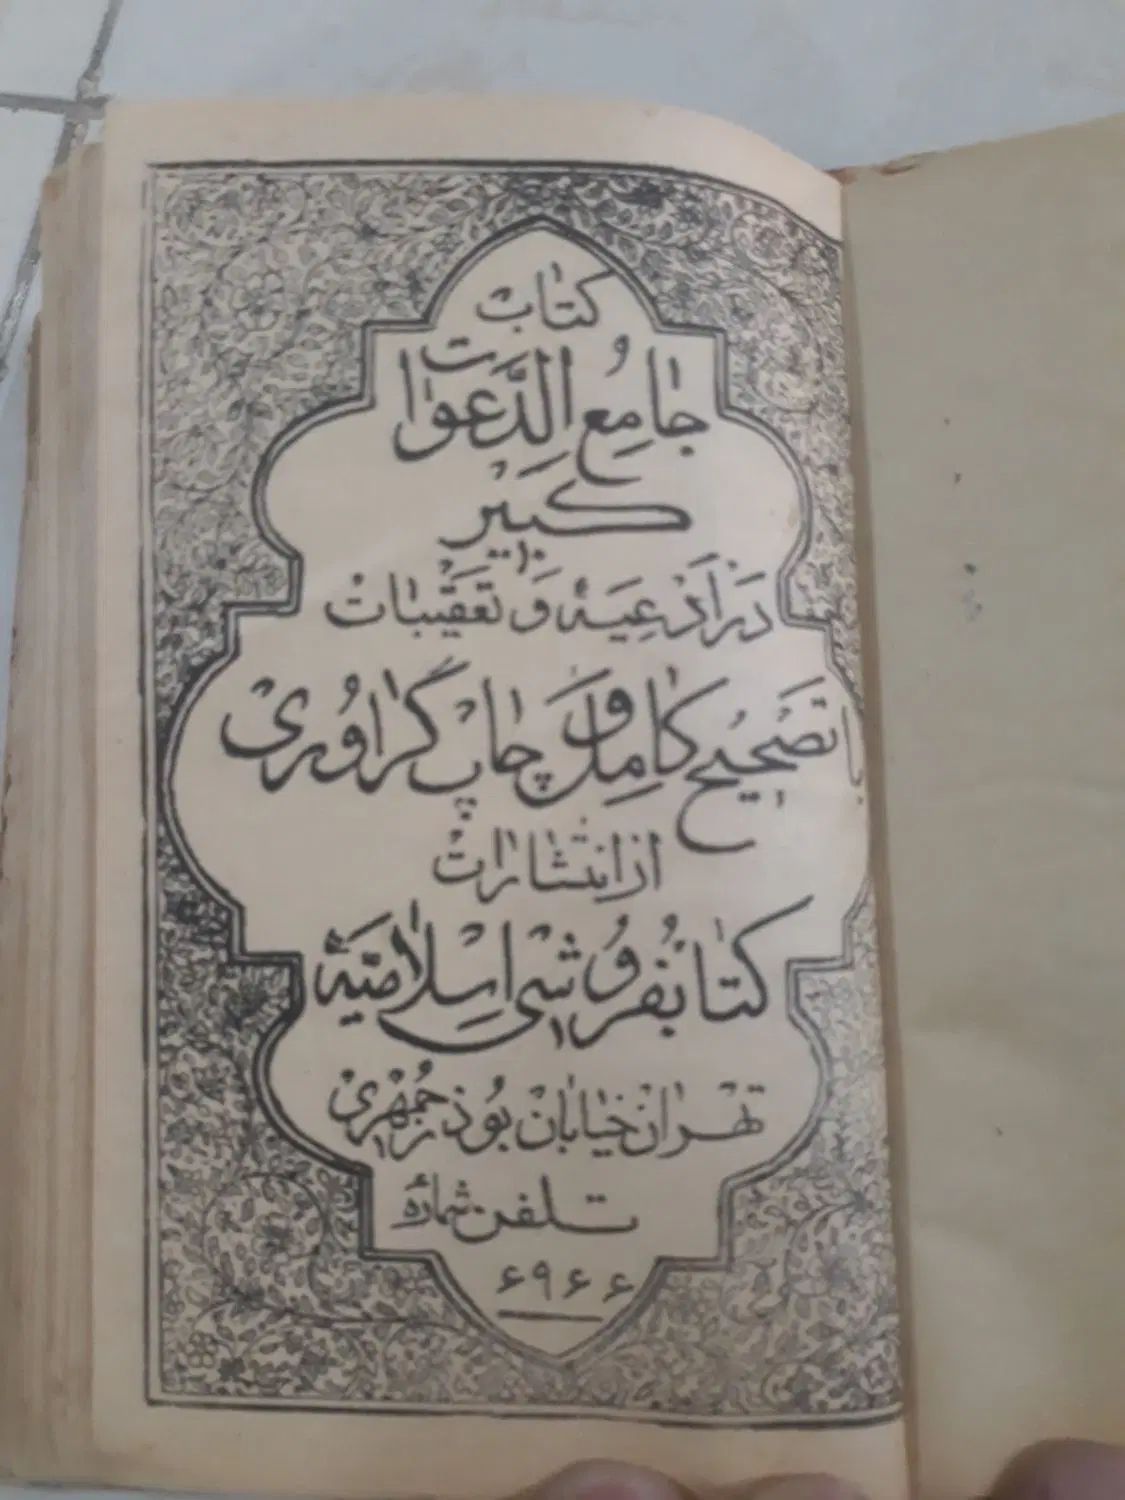 کتاب
جامع الدَّعَوات
کبیر
در ادعیه و تعقیبات
با تصحیح کامل و چاپ گراوری
از انتشارات
کتابفروشی اسلامیّه
تهران خیابان بوذرجمهری
تلفن شماره
۶۹۶۶